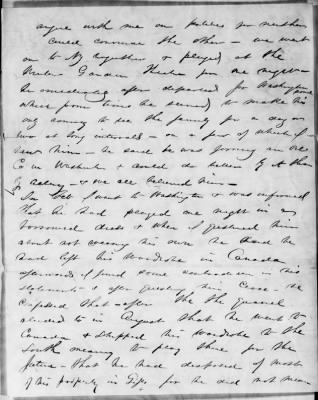 argue with me on politics for neither
could convince the other – we went
on to NY together & played at the
Winter Garden Theatre for one night –
he immediately after departed for Washington
where from time he seemed to make his
only coming to see the family for a day or
two at long intervals – on a few of which I
saw him – he said he was forming an Oil
Co in Washn & could do better by it than
by acting – & we all believed him –
In Feb I went to Washington & was informed
that he had played one night in a
borrowed dress & when I questioned him
about not wearing his own he said he
had left his wardrobe in Canada
afterwards I found some contradiction in his
statements & after questioning him close – he
confessed that after the quarrel
alluded to in August that he went to
Canada & shipped his wardrobe to the
South meaning to play there for the
future – that he had disposed of most
of his property in for he did not mean